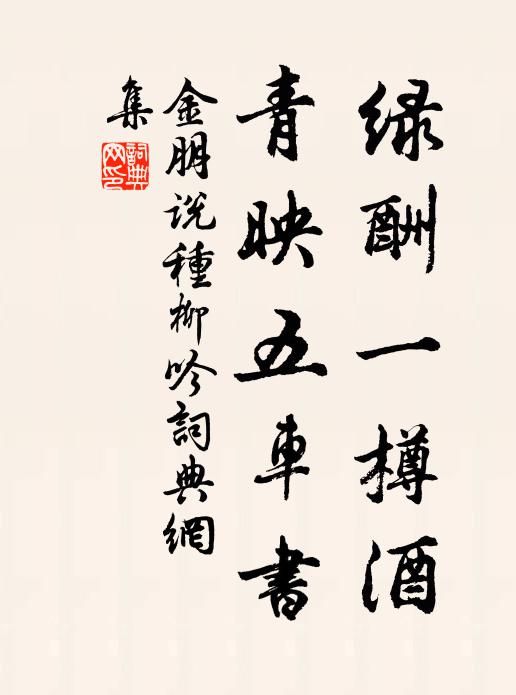 绿酬一樽酒
青映五車書
金朋说種柳吟詞典網
集
詞典網印